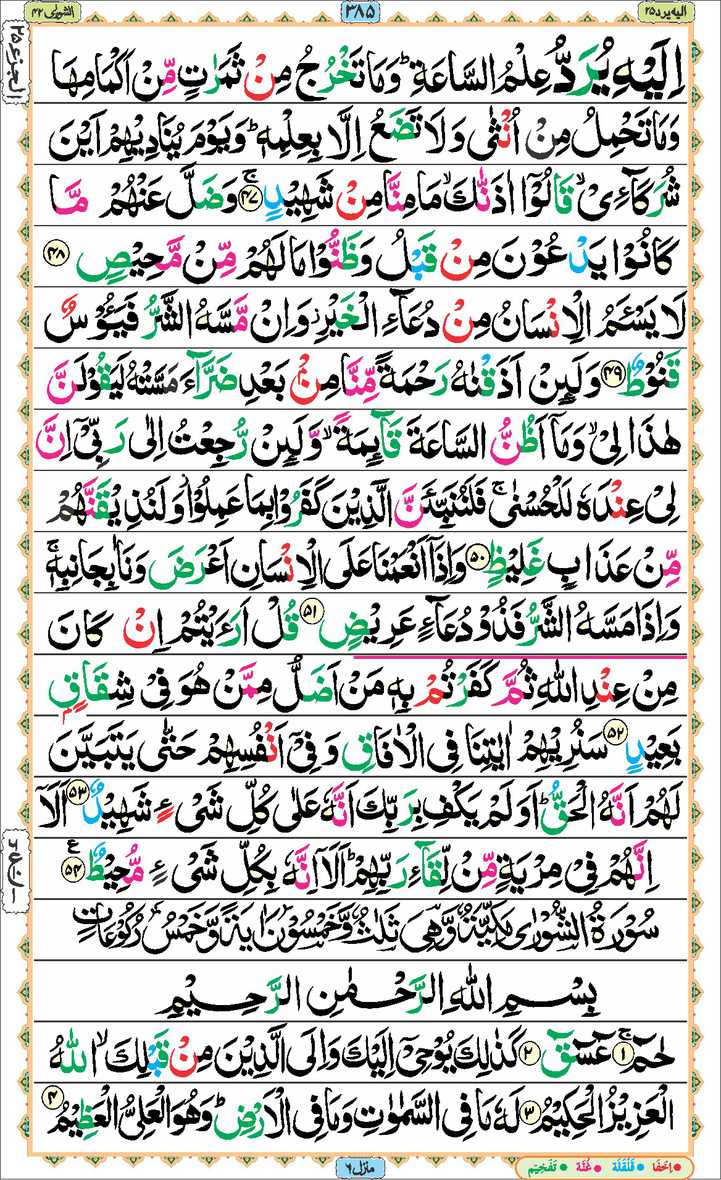 الشورٰی ۴۲
۳۸۵
الیه یرد ۲۵
الجزء ۲۵
اِلَیْهِ یُرَدُّ عِلْمُ السَّاعَةِ ؕ وَمَا تَخْرُجُ مِنْ ثَمَرٰتٍ مِّنْ اَكْمَامِهَا
وَمَا تَحْمِلُ مِنْ اُنْثٰی وَلَا تَضَعُ اِلَّا بِعِلْمِهٖ ؕ وَیَوْمَ یُنَادِیْهِمْ اَیْنَ
شُرَكَآءِیْ ۙ قَالُوْۤا اٰذَنّٰكَ ۙ مَا مِنَّا مِنْ شَهِیْدٍ ۚ ﴿۴۷﴾ وَضَلَّ عَنْهُمْ مَّا
كَانُوْا یَدْعُوْنَ مِنْ قَبْلُ وَظَنُّوْا مَا لَهُمْ مِّنْ مَّحِیْصٍ ﴿۴۸﴾
لَا یَسْـَٔمُ الْاِنْسَانُ مِنْ دُعَآءِ الْخَیْرِ ؗ وَاِنْ مَّسَّهُ الشَّرُّ فَیَـُٔوْسٌ
قَنُوْطٌ ﴿۴۹﴾ وَلَىِٕنْ اَذَقْنٰهُ رَحْمَةً مِّنَّا مِنْۢ بَعْدِ ضَرَّآءَ مَسَّتْهُ لَیَقُوْلَنَّ
هٰذَا لِیْ ۙ وَمَاۤ اَظُنُّ السَّاعَةَ قَآىِٕمَةً ۙ وَّلَىِٕنْ رُّجِعْتُ اِلٰی رَبِّیْۤ اِنَّ
لِیْ عِنْدَهٗ لَلْحُسْنٰی ۚ فَلَنُنَبِّئَنَّ الَّذِیْنَ كَفَرُوْا بِمَا عَمِلُوْا ؗ وَلَنُذِیْقَنَّهُمْ
مِّنْ عَذَابٍ غَلِیْظٍ ﴿۵۰﴾ وَاِذَاۤ اَنْعَمْنَا عَلَی الْاِنْسَانِ اَعْرَضَ وَنَاٰ بِجَانِبِهٖ ۚ
وَاِذَا مَسَّهُ الشَّرُّ فَذُوْ دُعَآءٍ عَرِیْضٍ ﴿۵۱﴾ قُلْ اَرَءَیْتُمْ اِنْ كَانَ
مِنْ عِنْدِ اللّٰهِ ثُمَّ كَفَرْتُمْ بِهٖ مَنْ اَضَلُّ مِمَّنْ هُوَ فِیْ شِقَاقٍۭ
بَعِیْدٍ ﴿۵۲﴾ سَنُرِیْهِمْ اٰیٰتِنَا فِی الْاٰفَاقِ وَفِیْۤ اَنْفُسِهِمْ حَتّٰی یَتَبَیَّنَ
لَهُمْ اَنَّهُ الْحَقُّ ؕ اَوَلَمْ یَكْفِ بِرَبِّكَ اَنَّهٗ عَلٰی كُلِّ شَیْءٍ شَهِیْدٌ ﴿۵۳﴾ اَلَاۤ
اِنَّهُمْ فِیْ مِرْیَةٍ مِّنْ لِّقَآءِ رَبِّهِمْ ؕ اَلَاۤ اِنَّهٗ بِكُلِّ شَیْءٍ مُّحِیْطٌ ﴿۵۴﴾ ع
سُوْرَةُ الشُّوْرٰی مَكِّیَّةٌ وَّهِیَ ثَلٰثٌ وَّخَمْسُوْنَ اٰیَةً وَّخَمْسُ رُكُوْعَاتٍ
بِسْمِ اللّٰهِ الرَّحْمٰنِ الرَّحِیْمِ
حٰمٓ ۚ ﴿۱﴾ عٓسٓقٓ ﴿۲﴾ كَذٰلِكَ یُوْحِیْۤ اِلَیْكَ وَاِلَی الَّذِیْنَ مِنْ قَبْلِكَ ۙ اللّٰهُ
الْعَزِیْزُ الْحَكِیْمُ ﴿۳﴾ لَهٗ مَا فِی السَّمٰوٰتِ وَمَا فِی الْاَرْضِ ؕ وَهُوَ الْعَلِیُّ الْعَظِیْمُ ﴿۴﴾
منزل ۶
اخفا • قلقلة • غنة • تفخیم •